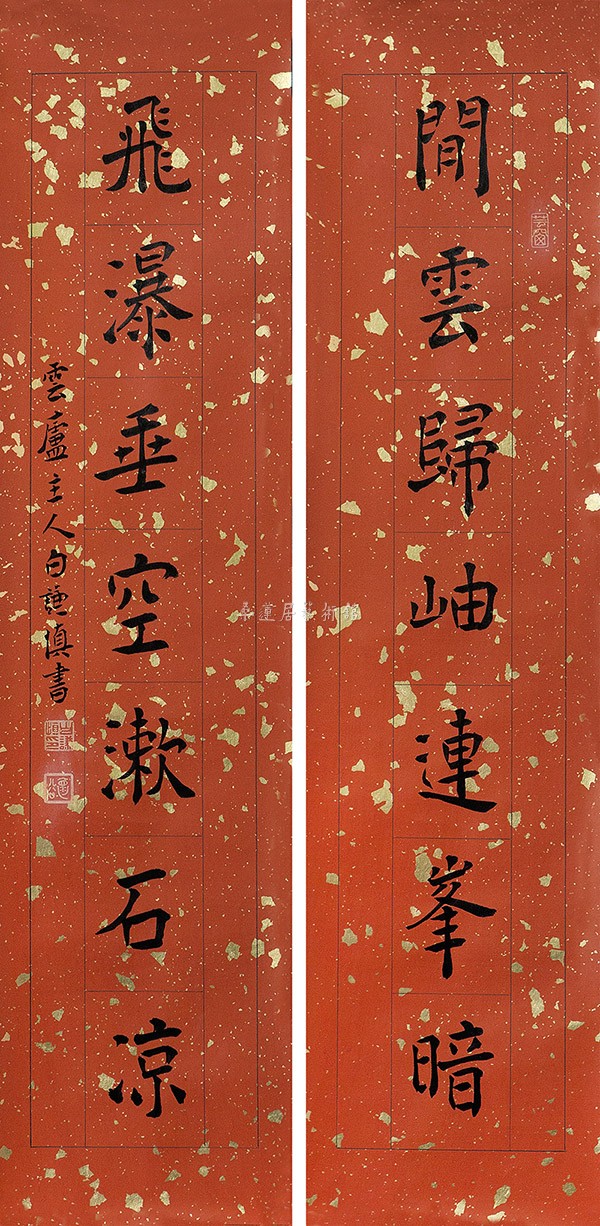 間雲歸岫連峯暗
飛瀑垂空漱石凉
雲廬主人白謙慎書